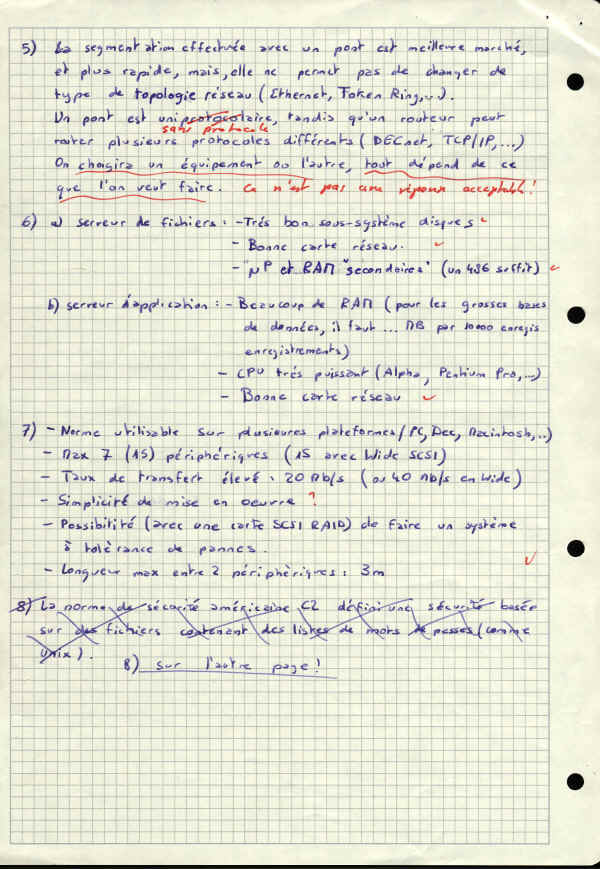 5) La segmentation effectuée avec un pont est meilleure marché,
et plus rapide, mais, elle ne permet pas de changer de
type de topologie réseau (Ethernet, Token Ring,...).
Un pont est uniprotocolaire, tandis qu'un routeur peut
sans protocole
router plusieurs protocoles différents (DECnet, TCP/IP,...)
On choigira un équipement ou l'autre, tout dépend de ce
que l'on veut faire. Ce n'est pas une réponse acceptable!
6) a) serveur de fichiers : - Très bon sous-système disques
- Bonne carte réseau.
- "µP et RAM "secondaires" (un 486 suffit)
b) serveur d'application : - Beaucoup de RAM (pour les grosses bases
de données, il faut ... MB par 10000 enregis
enregistrements)
- CPU très puissant (Alpha, Pentium Pro,...)
- Bonne carte réseau
7) - Norme utilisable sur plusieures plateformes (PC, Dec, Macintosh,..)
- Max 7 (15) périphériques (15 avec Wide SCSI)
- Taux de transfert élevé : 20 Mb/s (ou 40 Mb/s en Wide)
- Simplicité de mise en oeuvre ?
- Possibilité (avec une carte SCSI RAID) de faire un système
à tolérance de pannes.
- Longueur max entre 2 périphériques : 3m
8) La norme de sécurité américaine C2 défini une sécurité basée
sur des fichiers contenant des listes de mots de passes (comme
Unix).
8) sur l'autre page!